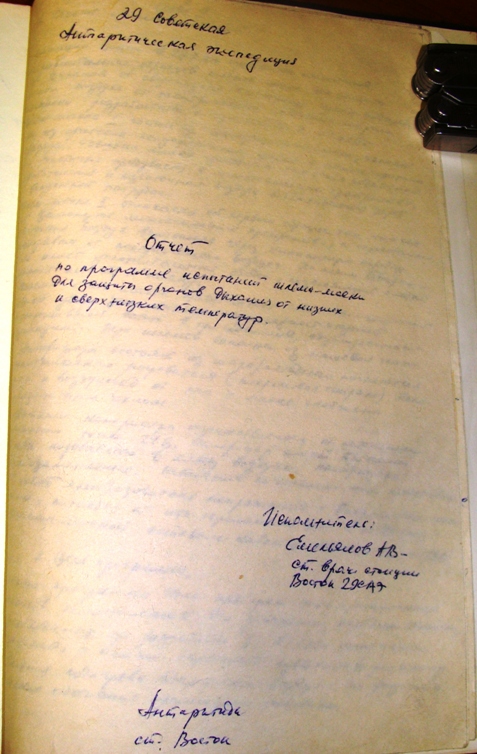 29 Советская
Антарктическая экспедиция
Отчет
по программе испытаний шлема-маски
для защиты органов дыхания от низких
и сверхнизких температур.
Исполнитель:
Емельянов АВ-
ст. врач станции
Восток 29САЭ
Антарктида
ст. Восток